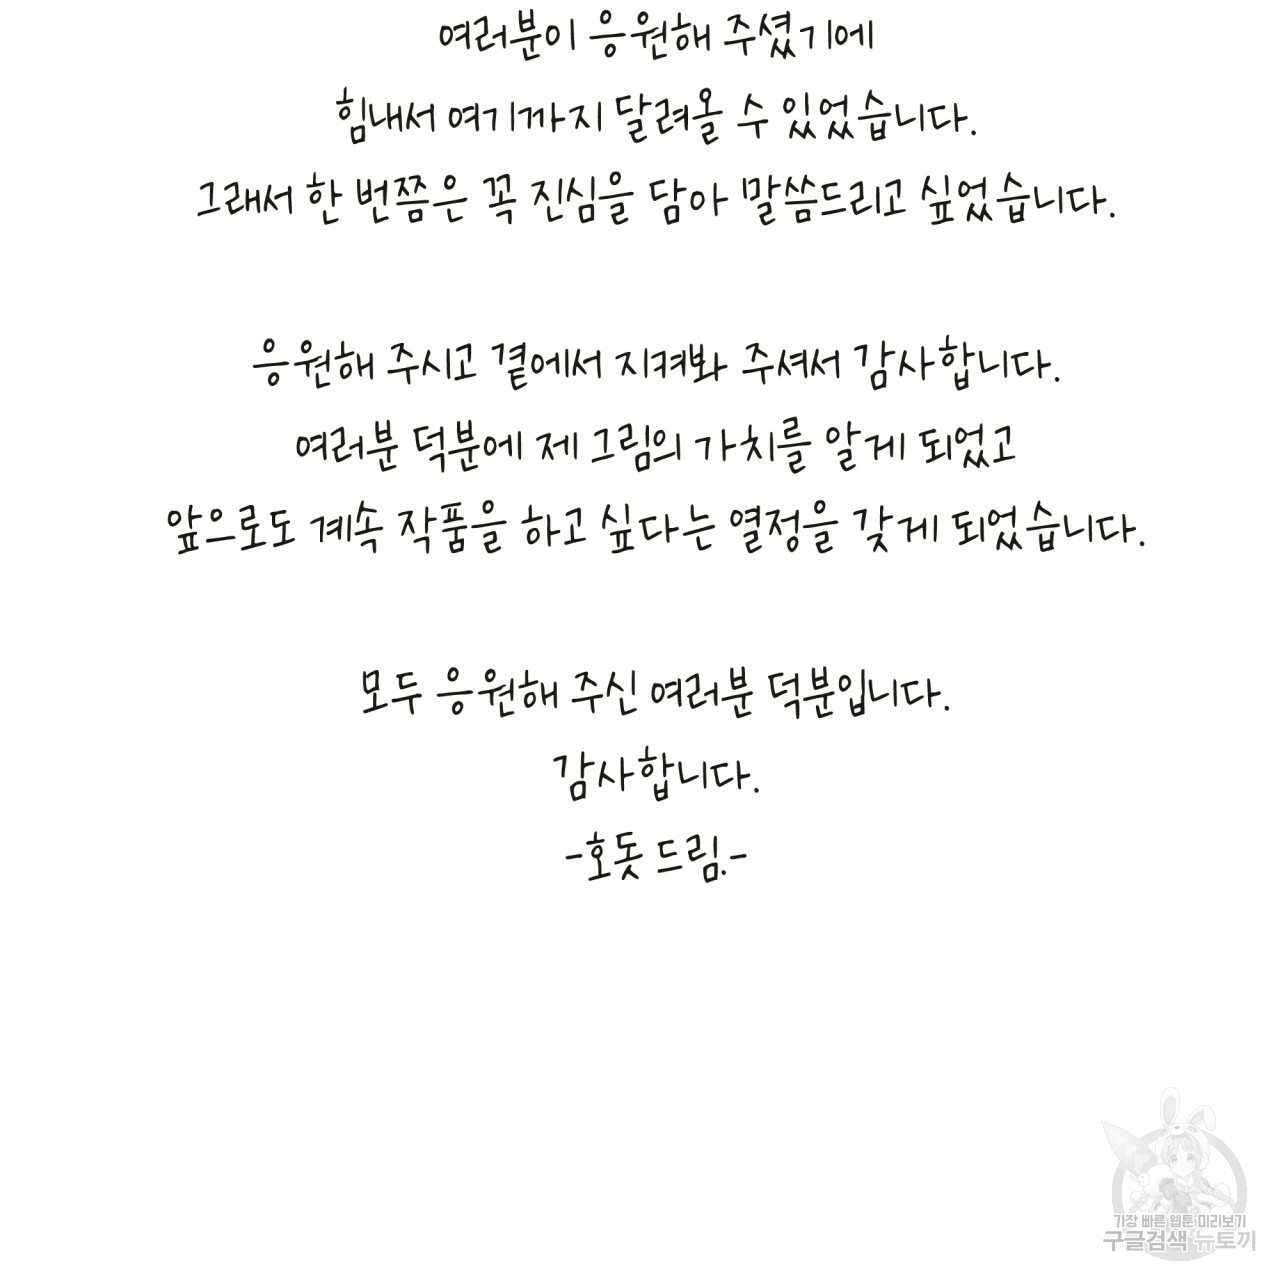 여러분이 응원해 주셨기에
힘내서 여기까지 달려올 수 있었습니다.
그래서 한 번쯤은 꼭 진심을 담아 말씀드리고 싶었습니다.
응원해 주시고 곁에서 지켜봐 주셔서 감사합니다.
여러분 덕분에 제 그림의 가치를 알게 되었고
앞으로도 계속 작품을 하고 싶다는 열정을 갖게 되었습니다.
모두 응원해 주신 여러분 덕분입니다.
감사합니다.
-호돗 드림.-
가장 빠른 웹툰 미리보기
구글검색 뉴토끼